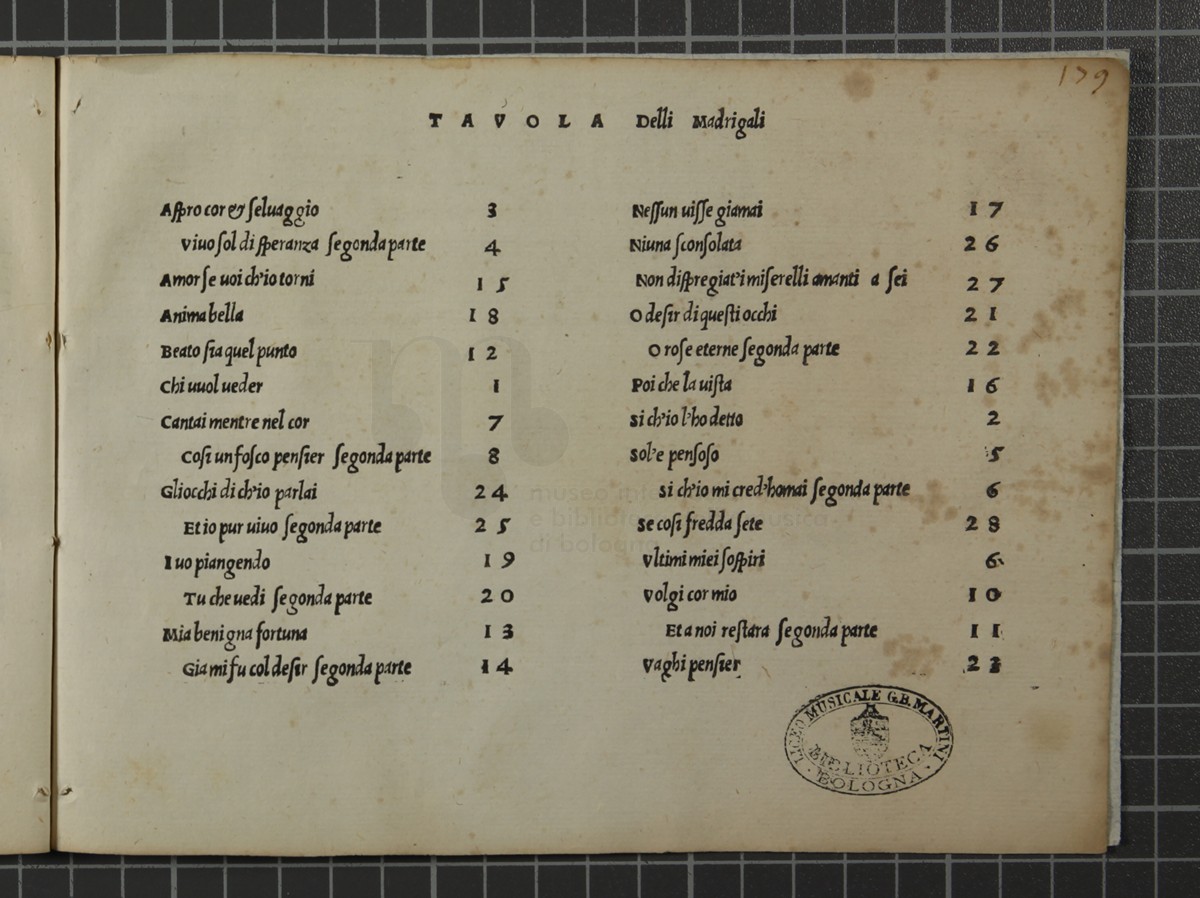 179
TAVOLA Delli Madrigali
Aspro cor & seluaggio 3
Viuo sol di speranza segonda parte 4
Amor se uoi ch'io torni 15
Anima bella 18
Beato sia quel punto 12
Chi uuol ueder 1
Cantai mentre nel cor 7
Cosi un fosco pensier segonda parte 8
Gliocchi di ch'io parlai 24
Et io pur uiuo segonda parte 25
I uo piangendo 19
Tu che uedi segonda parte 20
Mia benigna fortuna 13
Gia mi fu col desir segonda parte 14
Nessun uisse giamai 17
Niuna sconsolata 26
Non dispregiat'i miserelli amanti a sei 27
O desir di questi occhi 21
O rose eterne segonda parte 22
Poi che la uista 16
Si ch'io l'ho detto 2
Sol'e pensoso 5
Si ch'io mi cred'homai segonda parte 6
Se cosi fredda sete 28
Vltimi miei sospiri 6
Volgi cor mio 10
Et a noi restara segonda parte 11
Vaghi pensier 23
LICEO MUSICALE G.B. MARTINI
BIBLIOTECA
BOLOGNA
museo
e biblio
di bologna